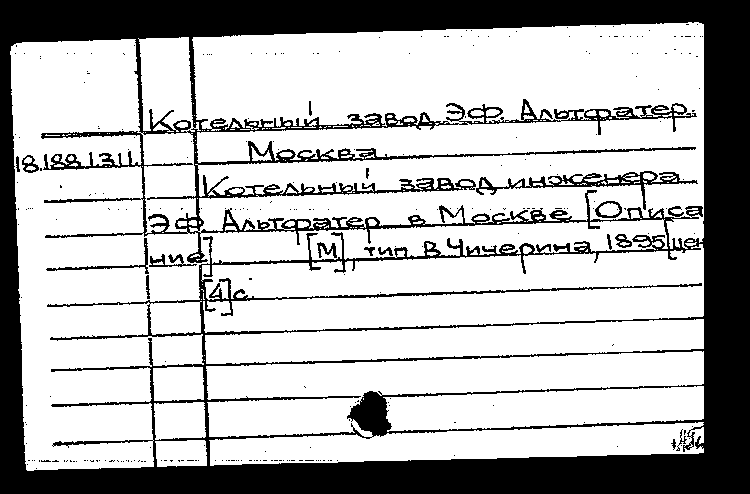 Котельный завод Эф Альтфатер.
18.188.1311. Москва.
Котельный завод инженера
Эф Альтфатер в Москве [Описа
ние]. [М], тип. В. Чичерина, 1895 [цен
[4] с.